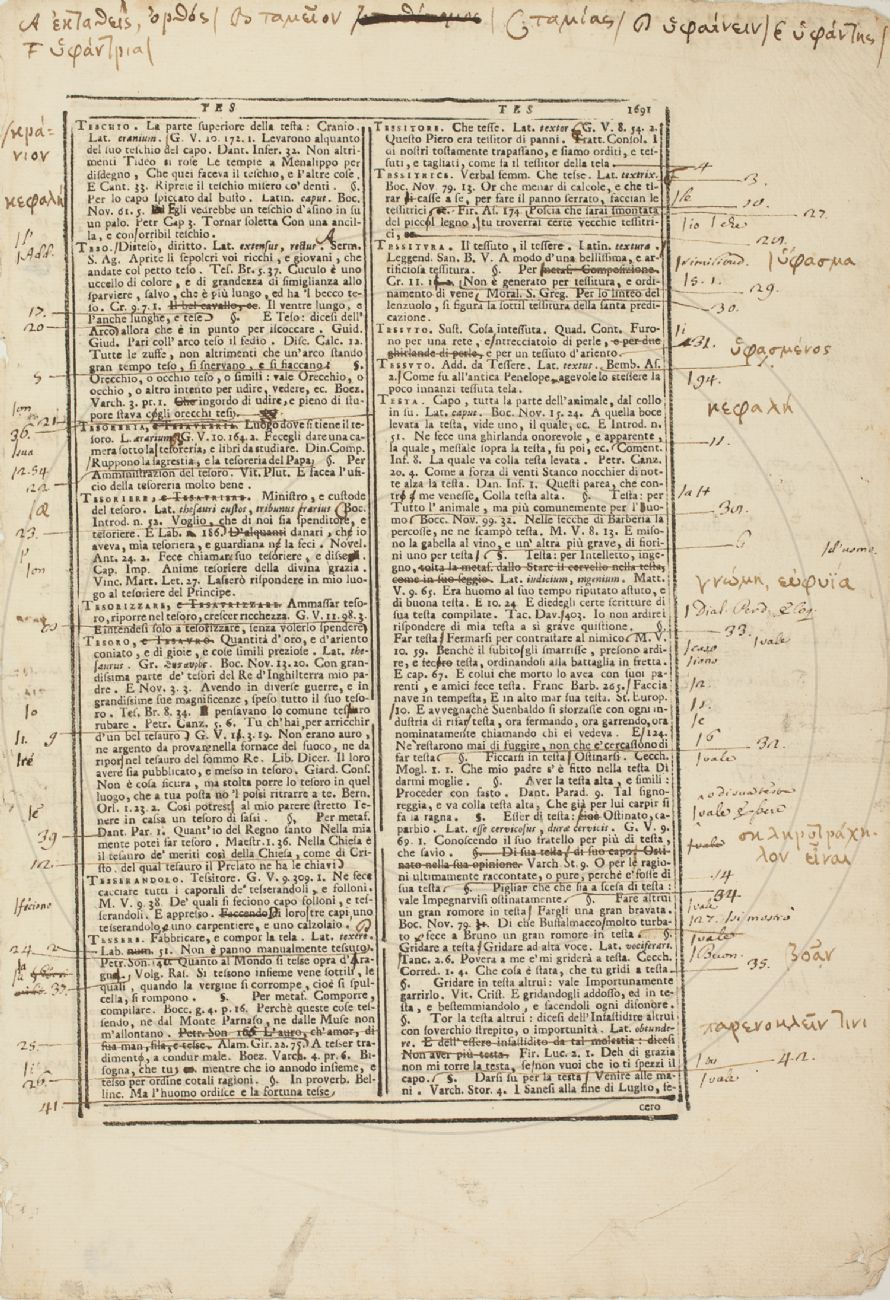 A ἐκταθείς, ὀρθός / B ταμεῖον / C ταμίας / D ὑφαίνειν / E ὑφάντης /
F ὑφάντρια /
TES
TESCHIO. La parte superiore della testa: Cranio.
Lat. cranium. G. V. 10. 172. 1. Levarono alquanto
del suo teschio del capo. Dant. Infer. 32. Non altri-
menti Tideo si rose Le tempie a Menalippo per
disdegno, Che quei faceva il teschio, e l'altre cose.
E Cant. 33. Riprese il teschio misero co' denti. §.
Per lo capo spiccato dal busto. Latin. caput. Boc.
Nov. 61. 5. Egli vedrebbe un teschio d'asino in su
un palo. Petr Cap 3. Tornar soletta Con una ancil-
la, e con l'orribil teschio.
TESO. Disteso, diritto. Lat. extensus, rectus. Serm.
S. Ag. Aprite li sepolcri voi ricchi, e giovani, che
andate col petto teso. Tes. Br. 5. 37. Cuculo è uno
uccello di colore, e di grandezza di simiglianza allo
sparviere, salvo, che è più lungo, ed ha 'l becco te-
so. Cr. 9. 7. 1. Il bel cavallo, ec. Il ventre lungo, e
Panche lunghe, e tese. §. E Teso: dicesi dell'
Arco, allora che è in punto per iscoccare. Guid.
Giud. Pari coll' arco teso il sedio. Disc. Calc. 12.
Tutte le zuffe, non altrimenti che un'arco stando
gran tempo teso, si snervano, e si fiaccano. §.
Orecchio, o occhio teso, o simili: vale Orecchio, o
occhio, o altro intento per udire, vedere, ec. Boez.
Varch. 3. pr. 1. Che ingordo di udire, e pieno di stu-
pore stava cogli orecchi tesi.
TESORERIA, e TESAURERIA. Luogo dove si tiene il te-
soro. L. ararium. G. V. 10. 164. 2. Fecegli dare una ca-
mera sotto la tesoreria, e libri da studiare. Din. Comp.
Ruppono la sagrestia, e la tesoreria del Papa. §. Per
Amministrazion del tesoro. Vit. Plut. E facea l'ufi-
cio della tesoreria molto bene.
TESORIERE, e TESAURIERE. Ministro, e custode
del tesoro. Lat. thesauri custos, tribunus ærarius. Boc.
Introd. n. 52. Voglio, che di noi sia spenditore, e
tesoriere. E Lab. n. 186. D'alquanti danari, che io
aveva, mia tesoriera, e guardiana ne la feci. Novel.
Ant. 24. 2. Fece chiamare suo tesoriere, e disse.
Cap. Imp. Anime tesoriere della divina grazia.
Vinc. Mart. Let. 27. Lasserò rispondere in mio luo-
go al tesoriere del Principe.
TESORIZZARE, e TESAURIZZARE. Ammassar teso-
ro, riporre nel tesoro, crescer ricchezza. G. V. 11. 98. 3.
E intendesi solo a tesorizzare, senza volerlo spendere.
TESORO, e TESAURO. Quantità d'oro, e d'ariento
coniato, e di gioie, e cose simili preziose. Lat. the-
saurus. Gr. θησαυρός. Boc. Nov. 13. 20. Con gran-
dissima parte de' tesori del Re d'Inghilterra mio pa-
dre. E Nov. 3. 3. Avendo in diverse guerre, e in
grandissime sue magnificenze, speso tutto il suo teso-
ro. Tes. Br. 8. 34. pensavano lo comune tesauro
rubare. Petr. Canz. 5. 6. Tu ch'hai, per arricchir
d'un bel tesauro. G. V. 11. 3. 19. Non erano auro,
ne argento da provare nella fornace del fuoco, ne da
ripor nel tesauro del sommo Re. Lib. Dicer. Il loro
avere sia pubblicato, e messo in tesoro. Giard. Cons.
Non è cosa sicura, ma stolta porre lo tesoro in quel
luogo, che a tua posta no 'l possi ritrarre a te. Bern.
Orl. 1. 23. 2. Così potresti al mio parere stretto Te-
nere in cassa un tesoro di sassi. §. Per metaf.
Dant. Par. 1. Quant'io del Regno santo Nella mia
mente potei far tesoro. Maestr. 1. 36. Nella Chiesa è
il tesauro de' meriti così della Chiesa, come di Cri-
sto. del qual tesauro il Prelato ne ha le chiavi.
TESSERANDOLO. Tessitore. G. V. 9. 309. 1. Ne fece
cacciare tutti i caporali de' teserandoli, e folloni.
M. V. 9. 38. De' quali si feciono capo folloni, e tes-
serandoli. E appresso. Facendo di loro tre capi, uno
teserandolo, uno carpentiere, e uno calzolaio.
TESSERE. Fabbricare, e compor la tela. Lat. texere.
Lab. num. 51. Non è panno manualmente tessuto.
Petr. Son. Quanto al Mondo si tesse opra d'Ara-
gne. Volg. Ras. Si tessono insieme vene sottili, le
quali, quando la vergine si corrompe, cioè si spul-
cella, si rompono. §. Per metaf. Comporre,
compilare. Bocc. g. 4. p. 16. Perchè queste cose tes-
sendo, ne dal Monte Parnaso, ne dalle Muse non
m'allontano. Petr. Son. 166. L'auro, ch'amor, di
sua man, fila, e tesse. Alam. Gir. 22. 75. A tesser tra-
dimento, a condur male. Boez. Varch. 4. pr. 6. Bi-
sogna, che tu mentre che io annodo insieme, e
tesso per ordine cotali ragioni. §. In proverb. Bel-
linc. Ma l'huomo ordisce e la fortuna tesse.
TES 1691
TESSITORE. Che tesse. Lat. textor. G. V. 8. 54. 2.
Questo Piero era tessitor di panni. Tratt. Consol. I
dì nostri tostamente trapassano, e siamo orditi, e tes-
suti, e tagliati, come fa il tessitor della tela.
TESSITRICE. Verbal femm. Che tesse. Lat. textrix.
Boc. Nov. 79. 13. Or che menar di calcole, e che ti-
rar casse a se, per fare il panno serrato, faccian le
tessitrici. Fir. As. 174. Poscia che sarai smontata
del piccol legno, tu troverrai certe vecchie tessitri-
ci,
TESSITURA. Il tessuto, il tessere. Latin. textura.
Leggend. San. B. V. A modo d'una bellissima, e ar-
tificiosa tessitura. §. Per metaf. Composizione.
Cr. 11. Non è generato per tessitura, e ordi-
namento di vene. Moral. S. Greg. Per lo linteo del
lenzuolo, si figura la sottil tessitura della santa predi-
cazione.
TESSUTO. Sust. Cosa intessuta. Quad. Cont. Furo-
no per una rete, e intrecciatoio di perle, e per due
ghirlande di perle, e per un tessuto d'ariento.
TESSUTO. Add. da Tessere. Lat. textus. Bemb. As.
2. Come fu all'antica Penelope agevole lo stessere la
poco innanzi tessuta tela.
TESTA. Capo, tutta la parte dell'animale, dal collo
in su. Lat. caput. Boc. Nov. 15. 24. A quella boce
levata la testa, vide uno, il quale, ec. E Introd. n.
51. Ne fece una ghirlanda onorevole, e apparente,
la quale, messale sopra la testa, fu poi, ec. Coment.
Inf. 8. La quale va colla testa levata. Petr. Canz.
20. 4. Come a forza di venti Stanco nocchier di not-
te alza la testa. Dan. Inf. 1. Questi parea, che con-
tr' a me venesse, Colla testa alta. §. Testa: per
Tutto l'animale, ma più comunemente per l'huo-
mo. Bocc. Nov. 99. 32. Nelle secche di Barberia la
percosse, ne ne scampò testa. M. V. 8. 13. E miso-
no la gabella al vino, e un' altra più grave, di fiori-
ni uno per testa. §. Testa: per Intelletto, inge-
gno, tolta la metaf. dallo Stare il cervello nella testa,
come in suo seggio. Lat. iudicium, ingenium. Matt.
V. 9. 65. Era huomo al suo tempo riputato astuto, e
di buona testa. E 10. 24. E diedegli certe scritture di
sua testa compilate. Tac. Dav. 403. Io non ardirei
rispondere di mia testa a sì grave quistione. §.
Far testa: Fermarsi per contrastare al nimico. M. V.
10. 59. Benchè il subito gli smarrisse, presono ardi-
re, e fecero testa, ordinandosi alla battaglia in fretta.
E cap. 67. E colui che morto lo avea con suoi pa-
renti, e amici fece testa. Franc. Barb. 265. Faccia
nave in tempesta, E in alto mar sua testa. St. Europ.
10. E avveganchè Suenbaldo si sforzasse con ogni in-
dustria di rifar testa, ora fermando, ora garrendo, ora
nominatamente chiamando chi ei vedeva. E 124.
Ne restarono mai di fuggire, non che e' cercassono di
far testa. §. Ficcarsi in testa: Ostinarsi. Cecch.
Mogl. 1. 1. Che mio padre s'è fitto nella testa Di
darmi moglie. §. Aver la testa alta, e simili:
Proceder con fasto. Dant. Parad. 9. Tal signo-
reggia, e va colla testa alta, Che già per lui carpir si
fa la ragna. §. Esser di testa: cioè Ostinato, ca-
parbio. Lat. esse cervicosus, duræ cervicis. G. V. 9.
69. 1. Conoscendo il suo fratello per più di testa,
che savio. §. Di sua testa, di suo capo: Osti-
nato nella sua opinione. Varch. St. 9. O per le ragio-
ni ultimamente raccontate, o pure, perchè e' fosse di
sua testa. §. Pigliar che che sia a scesa di testa:
vale Impegnarvisi ostinatamente. §. Fare altrui
un gran romore in testa: Fargli una gran bravata.
Boc. Nov. 79. Di che Bustalmacco molto turba-
to fece a Bruno un gran romore in testa. §.
Gridare a testa: Gridare ad alta voce. Lat. vociferari.
Tanc. 2. 6. Povera a me e' mi griderà a testa. Cecch.
Corred. 1. 4. Che cosa è stata, che tu gridi a testa.
§. Gridare in testa altrui: vale Importunamente
garrirlo. Vit. Crist. E gridandogli addosso, ed in te-
sta, e bestemmiandolo, e facendoli ogni disonore.
§. Tor la testa altrui: dicesi dell'Infastidire altrui
con soverchio strepito, o importunità. Lat. obtunde-
re. E dell'essero infastidito da tal molestia: dicesi
Non aver più testa. Fir. Luc. 2. 1. Deh di grazia
non mi torre la testa, se non vuoi che io ti spezzi il
capo. §. Darsi su per la testa: Venire alle ma-
ni. Varch. Stor. 4. I Sanesi alla fine di Luglio, fe-
cero
κρανίον
κεφαλή
Add.
17.
20
5
36.
12. 54
22
23.
9
39
24. 2
33
25.
26.
41
4
3.
10.
27.
29.
30.
31.
194.
11.
6
33.
vale
32.
vale
14
34
35.
42.
vale
ὕφασμα
ὑφασμένος
κεφαλή
γνώμη, εὐφυΐα
σκληροτράχη-
λον εἶναι
βοᾶν
παρενοχλεῖν τινι